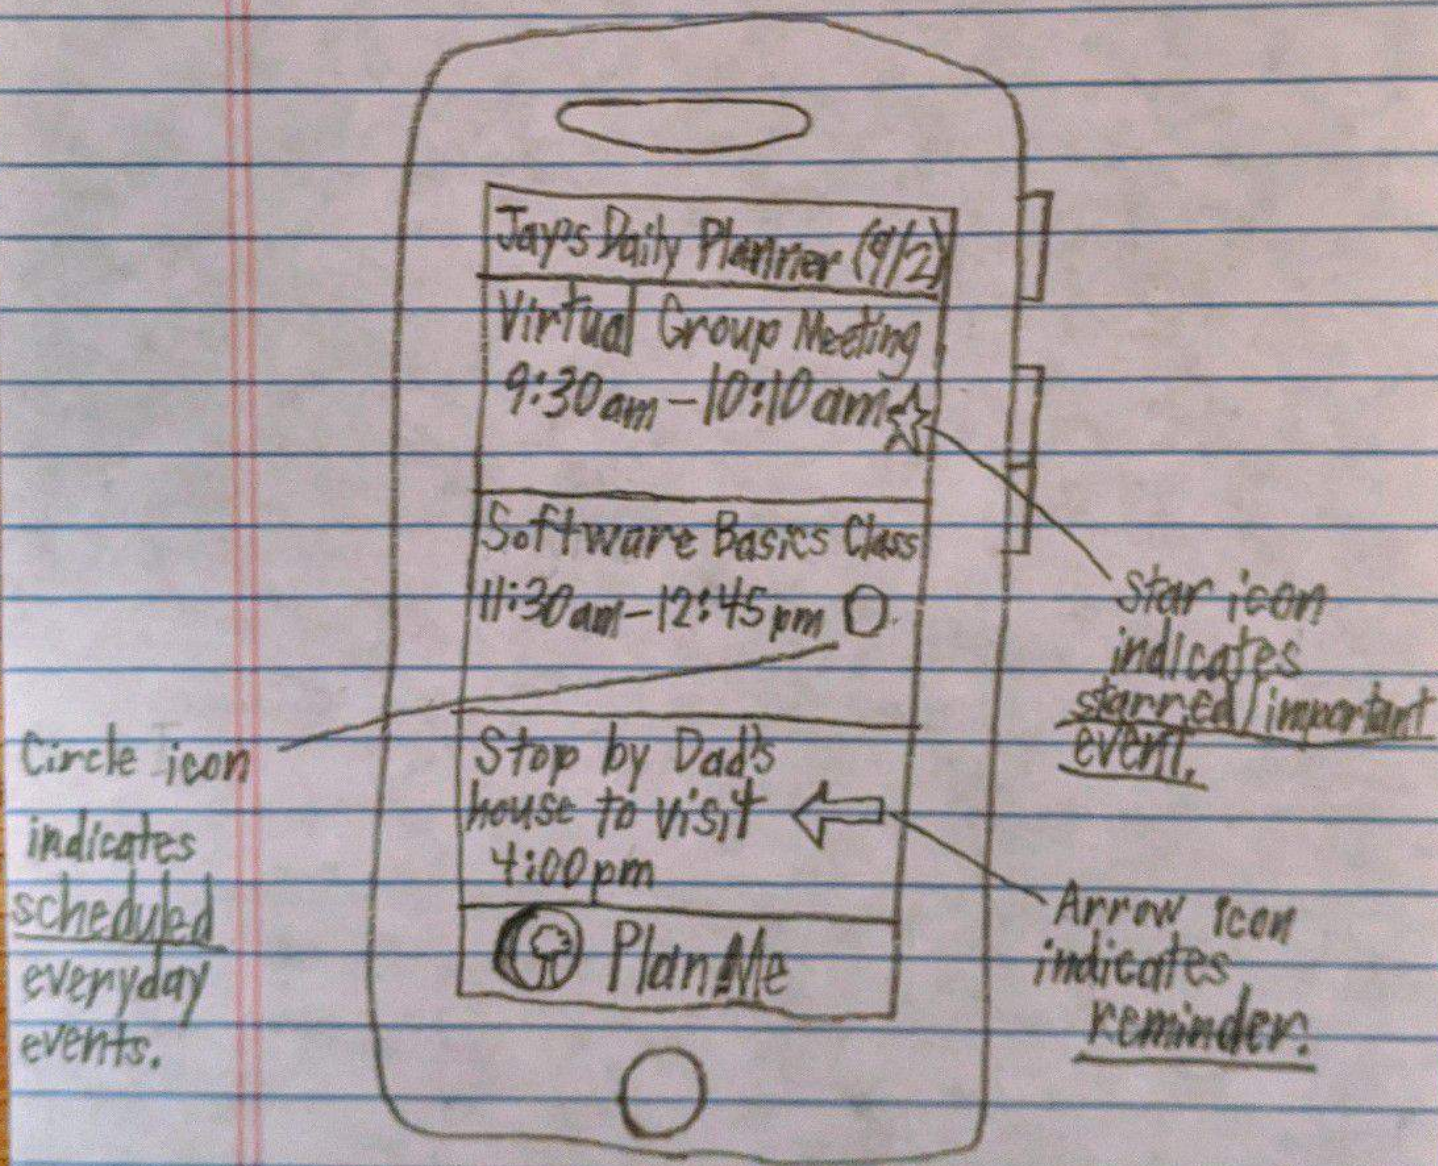 Jay's Daily Planner (9/2)
Virtual Group Meeting
9:30am-10:10am
Software Basics Class
11:30am-12:45pm
Stop by Dad's
house to visit
4:00pm
PlanMe
Star icon
indicates
starred/important
event.
Circle icon
indicates
scheduled
everyday
events.
Arrow icon
indicates
reminder.